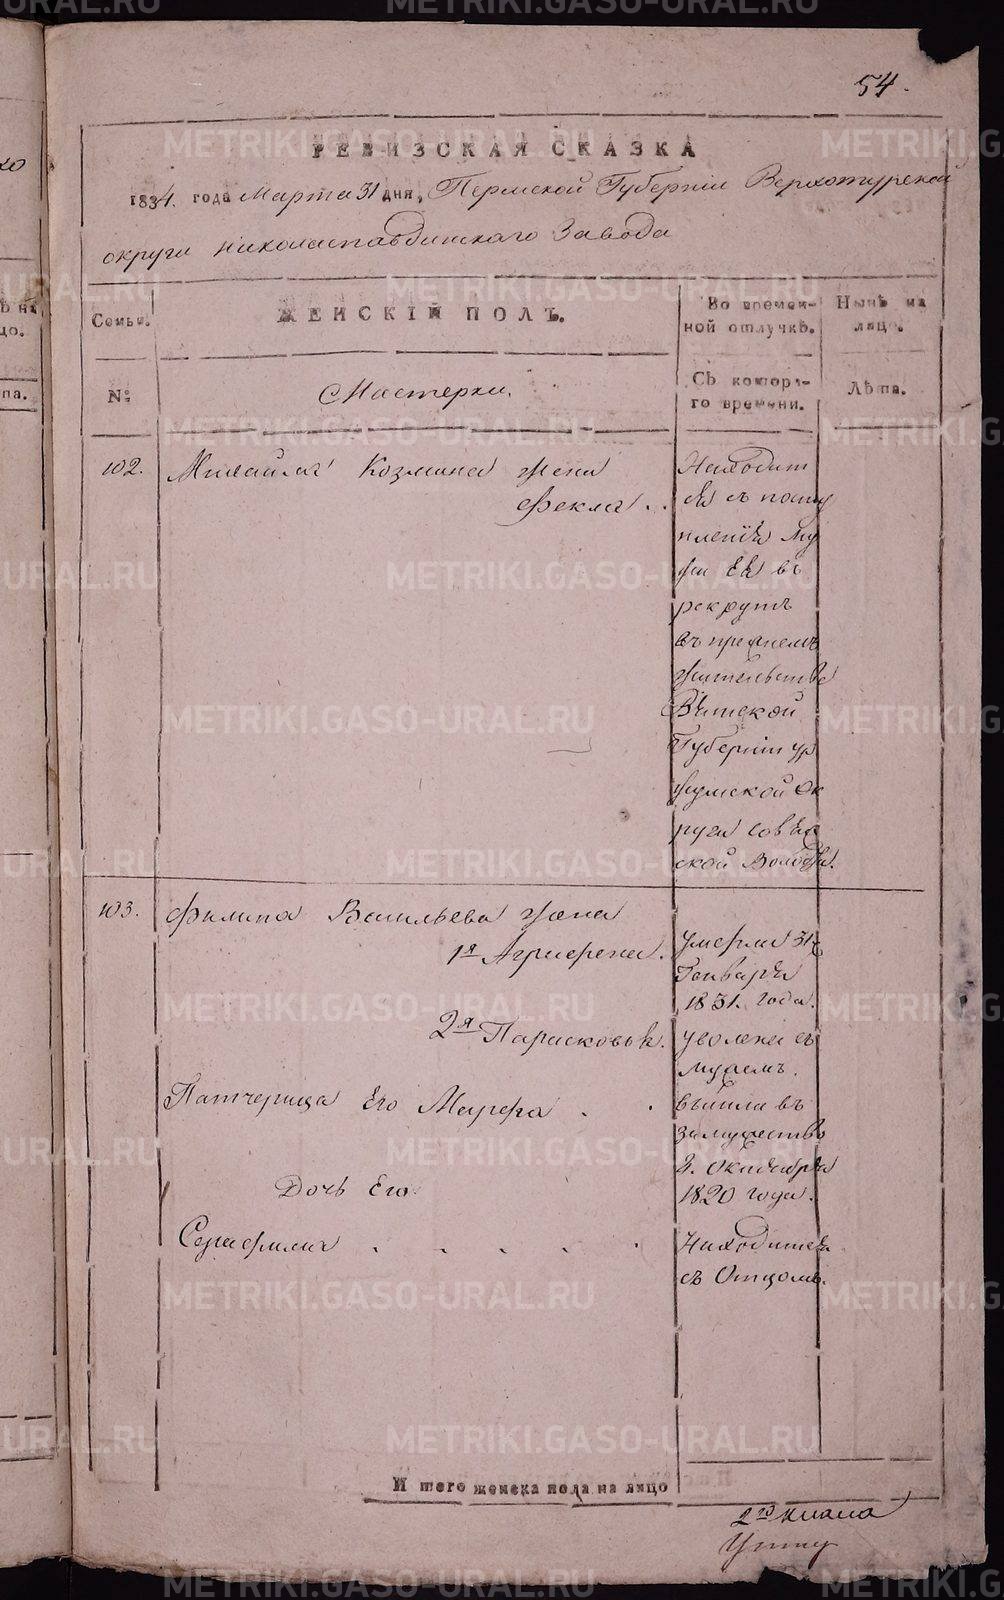 54.
РЕВИЗСКАЯ СКАЗКА
1834. года Марта 31 дня, Пермской Губернии Верхотурской
округи Николаепавдинскаго Завода
Семьи.
ЖЕНСКІЙ ПОЛЪ.
Во времен-
ной отлучкѣ.
Нынѣ на
лицо.
№
Мастерки.
Съ котора-
го времени.
Лѣта.
102.
Михайла Козмина жена
Фекла . .
Находит
ся съ посту
пленія му
жа ея въ
рекруты
въ прежнемъ
жительстве
Вятской
Губерніи ур
жумской ок
руги
ской Волости.
103.
Филипа Васильева жена
1я Аграфена.
умерла 31
Генваря
1831. года.
2я Парасковья.
уволена съ
мужемъ.
Патчерица Его Марфа . .
вышла въ
замужество
8. Октября
1820 года.
Дочь Его
Серафима . . . . .
Находится
съ Отцомъ.
И того женска пола на лицо
METRIKI.GASO-URAL.RU